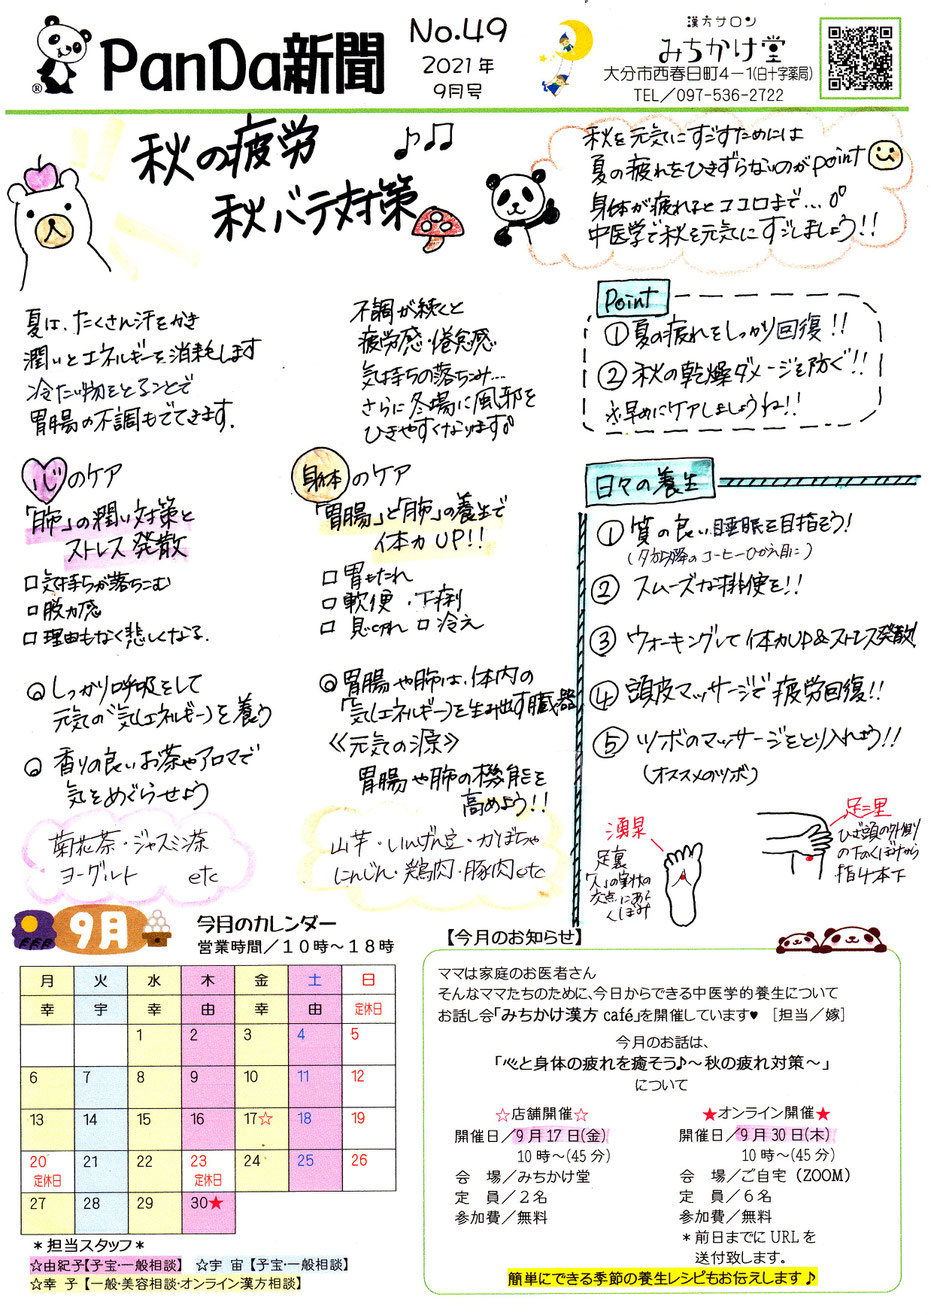 PanDa新聞
®
No.49
2021年
9月号
漢方サロン
みちかけ堂
大分市西春日町4-1(白十字薬局)
TEL/097-536-2722
秋の疲労
秋バテ対策
秋を元気にすごすためには
夏の疲れをひきずらないのがpoint
身体が疲れるとココロまで…
中医学で秋を元気にすごしましょう!!
夏は、たくさん汗をかき
潤いとエネルギーを消耗します
冷たい物をとることで
胃腸の不調もでてきます.
不調が続くと
疲労感・倦怠感
気持ちの落ちこみ…
さらに冬場に風邪を
ひきやすくなります
Point
①夏の疲れをしっかり回復!!
②秋の乾燥ダメージを防ぐ!!
※早めにケアしましょうね!!
心のケア
「肺」の潤い対策と
ストレス発散
□気持ちが落ちこむ
□脱力感
□理由もなく悲しくなる.
◎しっかり呼吸をして
元気の「気(エネルギー)を養う
◎香りの良いお茶やアロマで
気をめぐらせよう
菊花茶・ジャスミン茶
ヨーグルト etc
身体のケア
「胃腸」と「肺」の養生で
体力UP!!
□胃もたれ
□軟便・下痢
□息切れ □冷え
◎胃腸や肺は、体内の
「気(エネルギー)を生み出す臓器
《元気の源》
胃腸や肺の機能を
高めよう!!
山芋・いんげん豆・かぼちゃ
にんじん・鶏肉・豚肉etc
日々の養生
①質の良い睡眠を目指そう!
(夕方以降のコーヒーひかえ目に)
②スムーズな排便を!!
③ウォーキングして体力UP&ストレス発散!
④頭皮マッサージで疲労回復!!
⑤ツボのマッサージをとり入れよう!!
(オススメのツボ)
湧泉
足裏
「人」の字状の
交点にある
くぼみ
足三里
ひざ頭の外側
の下のくぼみから
指4本下
9月
今月のカレンダー
営業時間/10時~18時
月 火 水 木 金 土 日
幸 宇 幸 由 幸 由 定休日
1 2 3 4 5
6 7 8 9 10 11 12
13 14 15 16 17☆ 18 19
20 21 22 23 24 25 26
定休日 定休日
27 28 29 30★
*担当スタッフ*
☆由紀子【子宝・一般相談】 ☆宇 宙【子宝・一般相談】
☆幸 子【一般・美容相談・オンライン漢方相談】
【今月のお知らせ】
ママは家庭のお医者さん
そんなママたちのために、今日からできる中医学的養生について
お話し会「みちかけ漢方 café」を開催しています♥ [担当/嫁]
今月のお話は、
「心と身体の疲れを癒そう♪~秋の疲れ対策~」
について
☆店舗開催☆
開催日/9月17日(金)
10時~(45分)
会 場/みちかけ堂
定 員/2名
参加費/無料
★オンライン開催★
開催日/9月30日(木)
10時~(45分)
会 場/ご自宅(ZOOM)
定 員/6名
参加費/無料
*前日までにURLを
送付致します。
簡単にできる季節の養生レシピもお伝えします♪